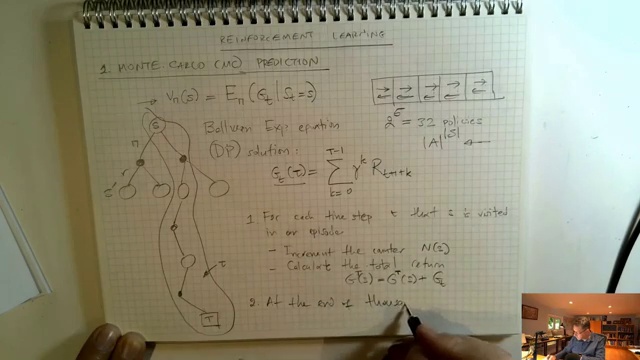 REINFORCEMENT LEARNING
1. MONTE CARLO (MC) PREDICTION
Vπ(s) = Eπ(Gt | St = s)
2^5 = 32 policies
|A|^|S|
Bellman Exp. equation
(DP) solution:
Gt(τ) = Σ_{k=0}^{T-1} γ^k R_{t+1+k}
1. For each time step t that s is visited
in an episode:
- Increment the counter N(s)
- Calculate the total return
G^T(s) = G^T(s) + Gt
2. At the end of
S
π
r
s'
τ
T